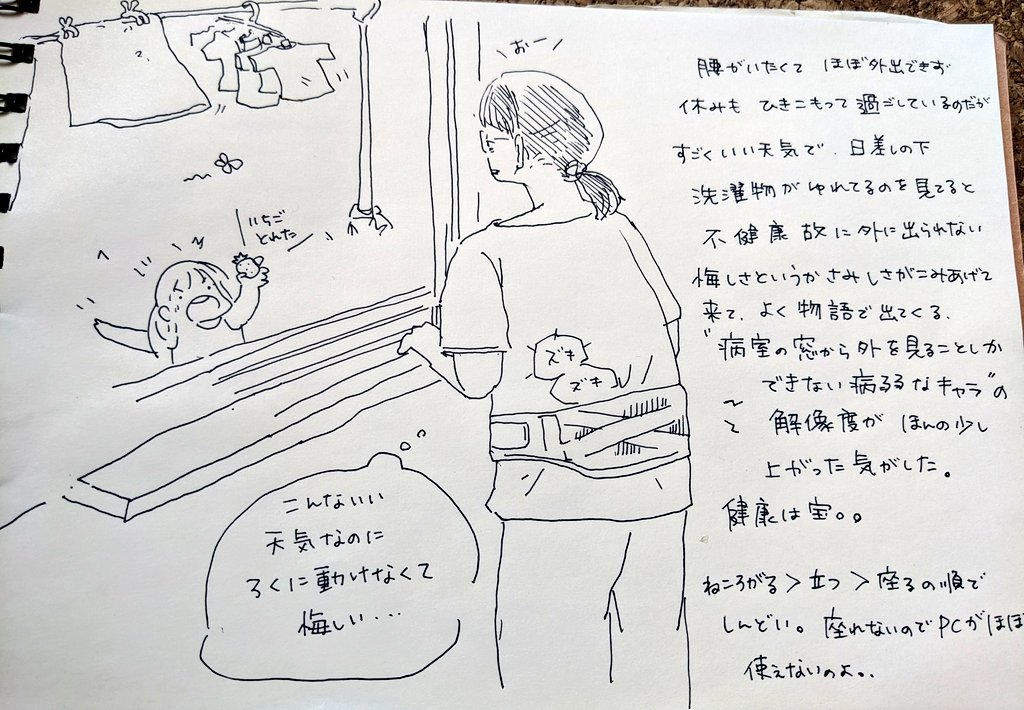 おー
いちご
とれた
ズキ
ズキ
こんないい
天気なのに
ろくに動けなくて
悔しい・・・
腰がいたくて ほぼ外出できず
休みも ひきこもって過ごしているのだが
すごくいい天気で、日差しの下
洗濯物がゆれてるのを見てると
不健康故に外に出られない
悔しさというかさみしさがこみあげて
来て、よく物語で出てくる、
"病室の窓から外を見ることしか
できない病弱なキャラ"の
解像度が ほんの少し
上がった気がした。
健康は宝。。
ねころがる>立つ>座るの順で
しんどい。座れないのでPCがほぼ
使えないのよ..